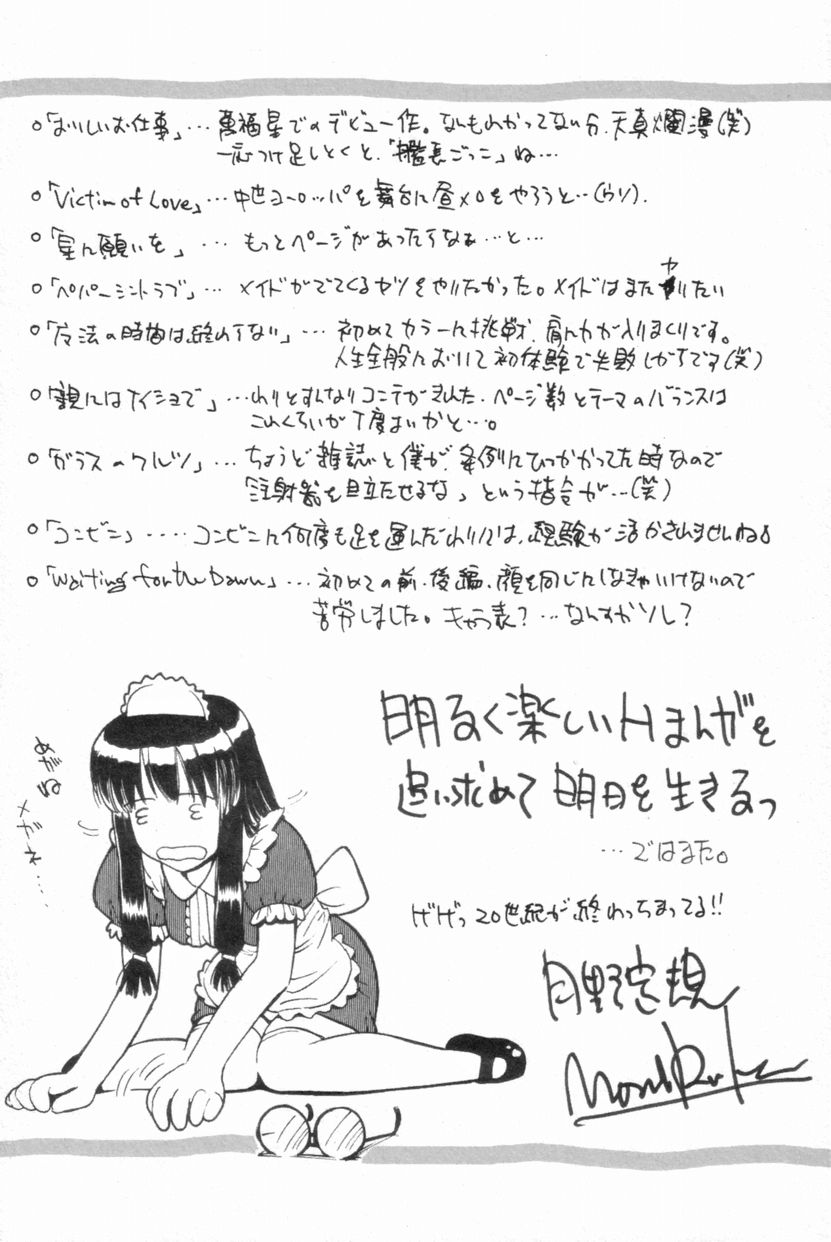 ○「おいしいお仕事」…萬福星でのデビュー作。なんもわかってない分、天真爛漫(笑)
一応つけ足しとくと、「艦長ごっこ」ね…
○「Victim of Love」…中世ヨーロッパを舞台に昼メロをやろうと…(ウソ).
○「星に願いを」… もっとページがあったらなぁ…と…
○「ペパーミントラブ」… メイドがでてくるヤツをやりたかった。メイドはまたヤりたい
○「魔法の時間は終わらない」… 初めてカラーに挑戦、肩に力が入りまくりです。
人生全般において初体験で失敗しがちです(笑)
○「親にはナイショで」…わりとすんなりコンテがきれた。ページ数とテーマのバランスは
これくらいが丁度よいかと…。
○「ガラスのワルツ」… ちょうど雑誌と僕が、条例にひっかかってた時なので
「注射器を目立たせるな」という指令が…(笑)
○「コンビニ」…‥ コンビニに何度も足を運んだわりには、経験が活かされませんね
○「Waiting for the Dawn」… 初めての前・後編、顔を同じにしなきゃいけないので
苦労しました。キャラ表?…なんすかソレ?
明るく楽しいHまんがを
追い求めて 明日を生きるっ
…ではまた。
ゲゲっ20世紀が終わっちまってる!!
月野定規
めがね
メガネ…